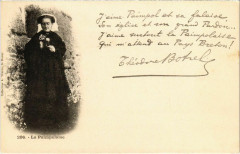 J'aime Paimpol et sa falaise
Son église et son grand Pardon...
J'aime surtout la Paimpolaise
Qui m'attend au Pays Breton!
Théodore Botrel
- La Paimpolaise